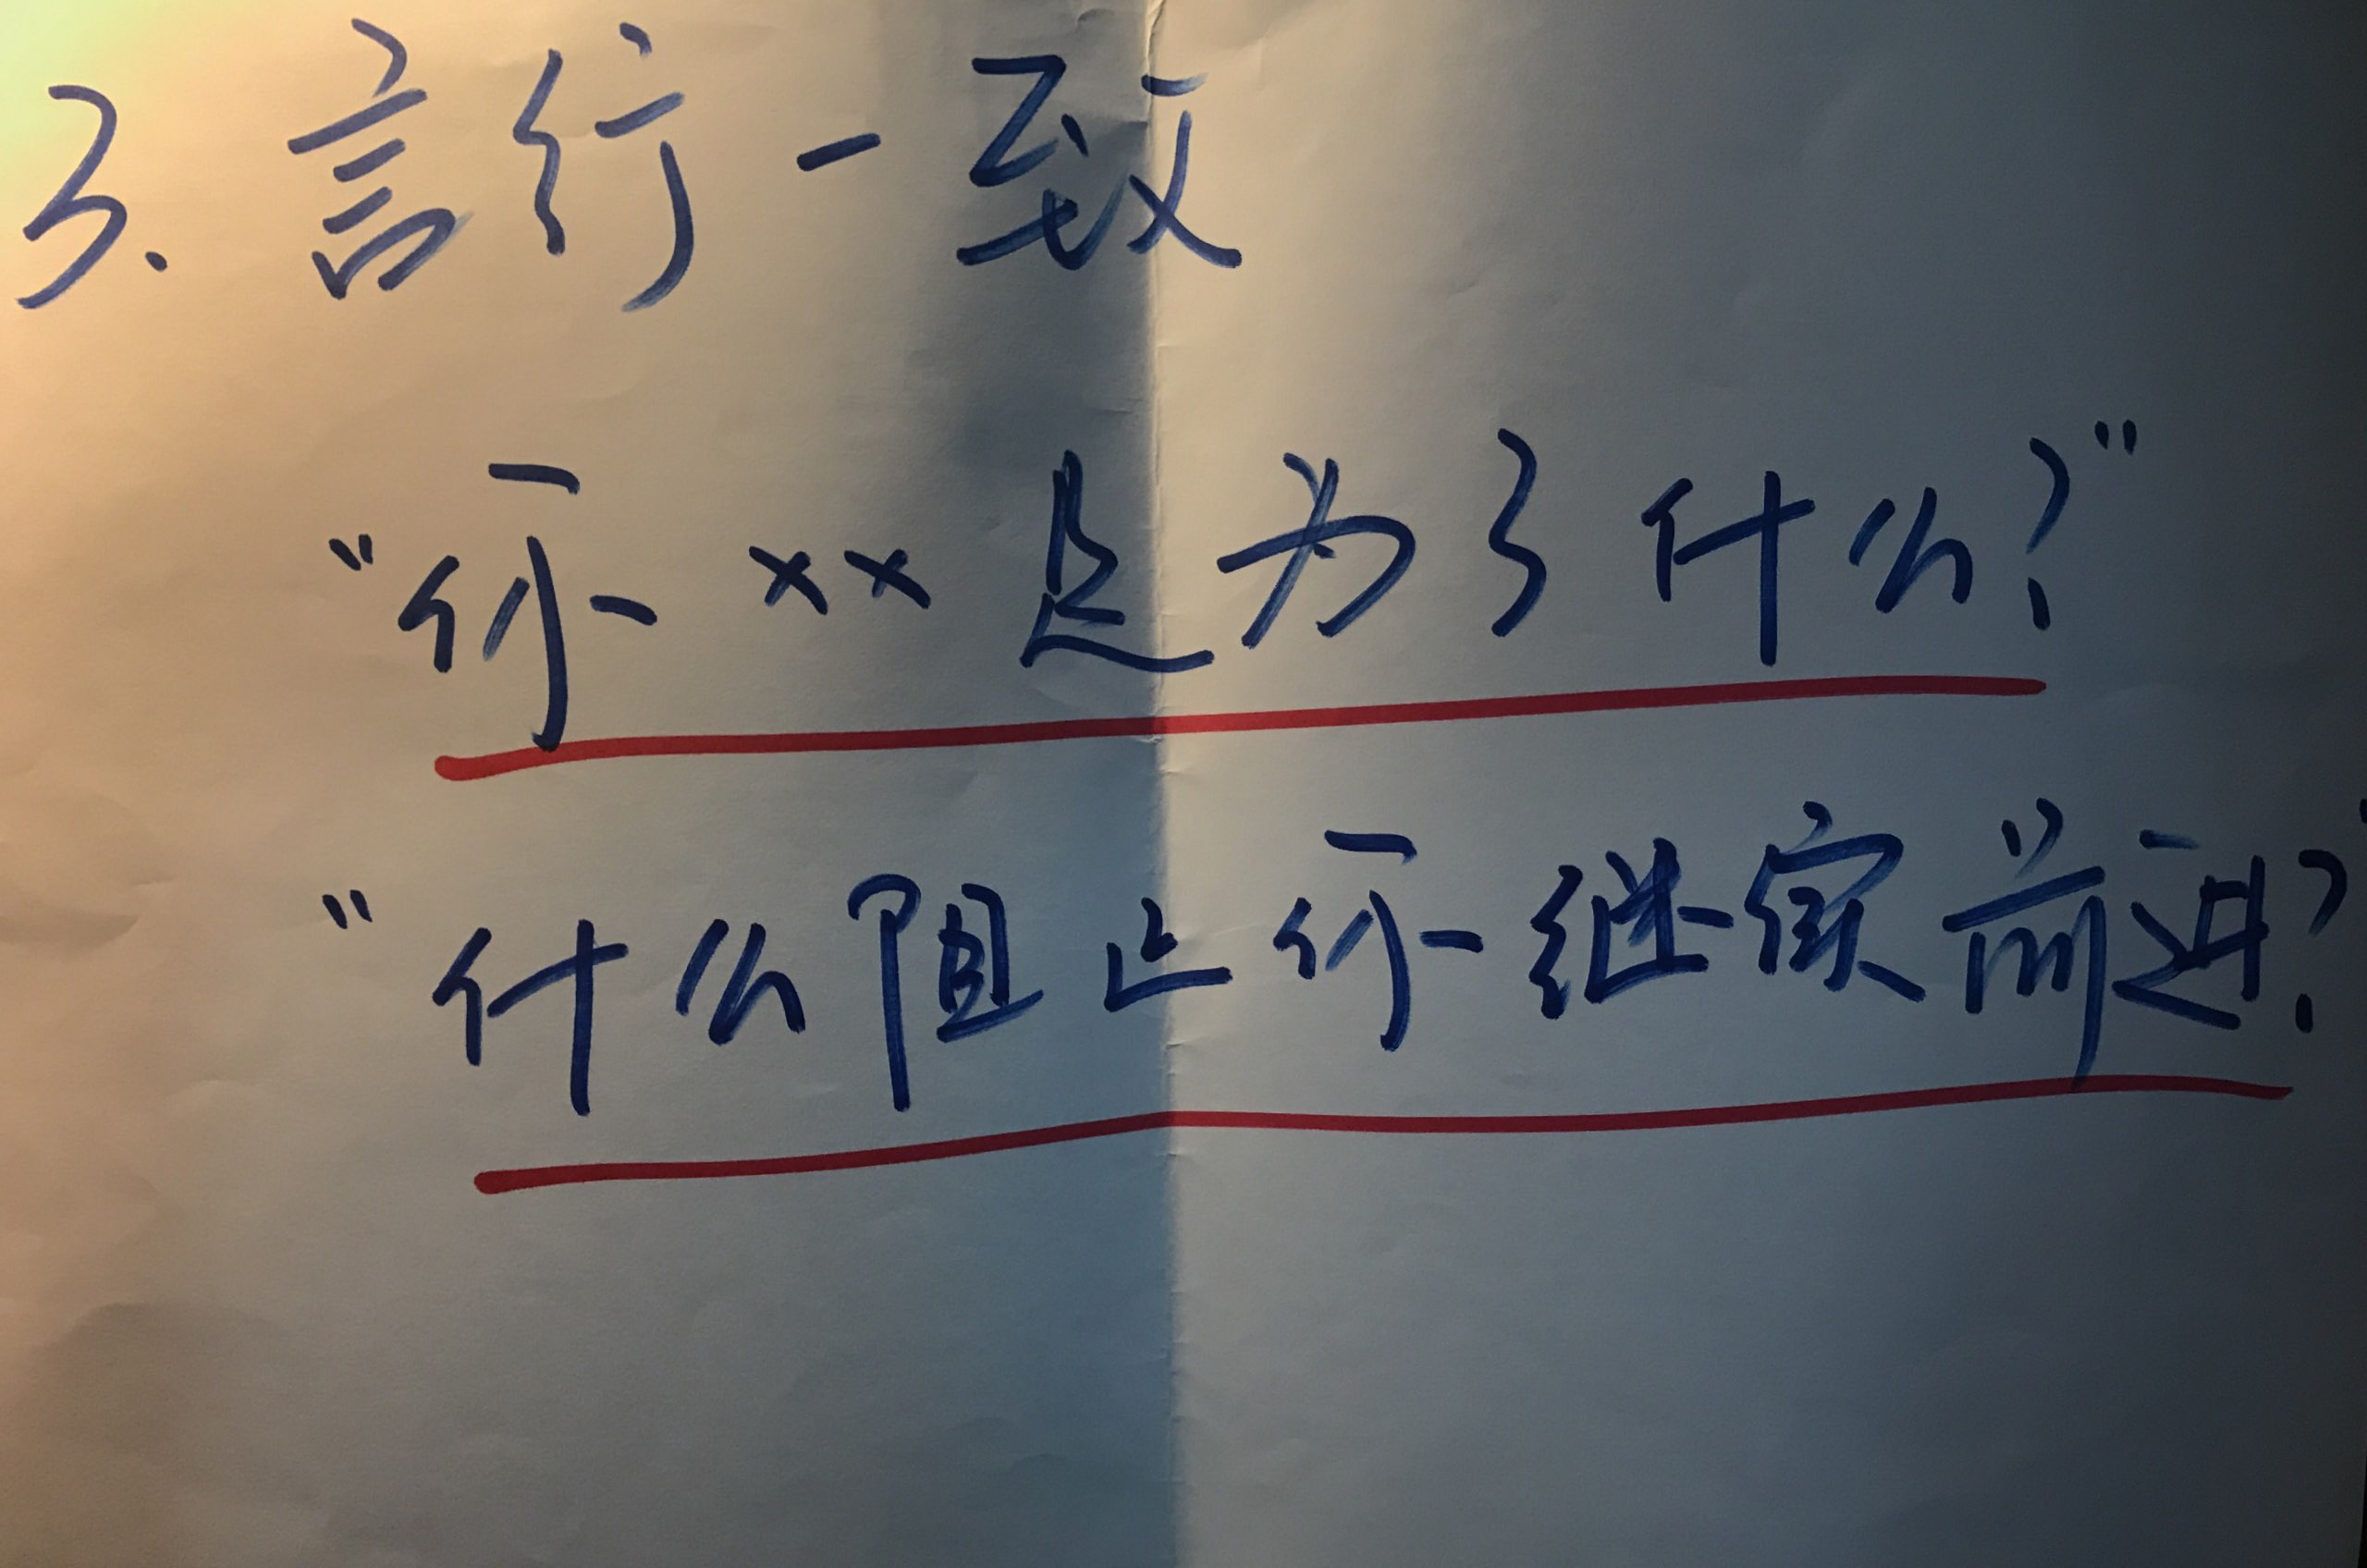 3. 言行一致
"你××是为了什么?"
"什么阻止你继续前进?"